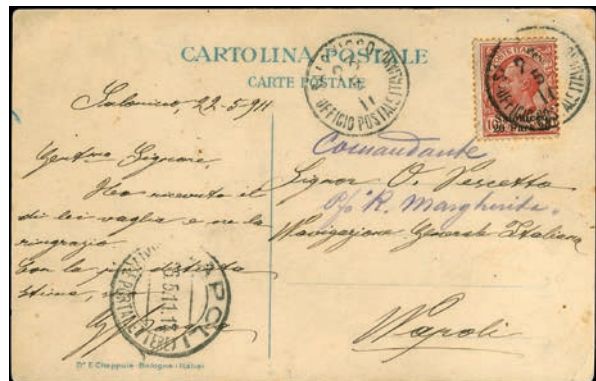 CARTOLINA POSTALE
CARTE POSTALE
SALONICCO
UFFICIO POSTALE ITALIANO
10
Salonicco
20 Para 20
Salonicco, 22-5-911
Gentmo Signore,
Ho ricevuto il
di lei vaglia e ne la
ringrazio.
Con la più distinta
stima,
Comandante
Signor O. Pescetto
P/o R. Margherita.
Navigazione Generale Italiana
Napoli
5.11
Dr. E. Chappuis - Bologna - (Italia)